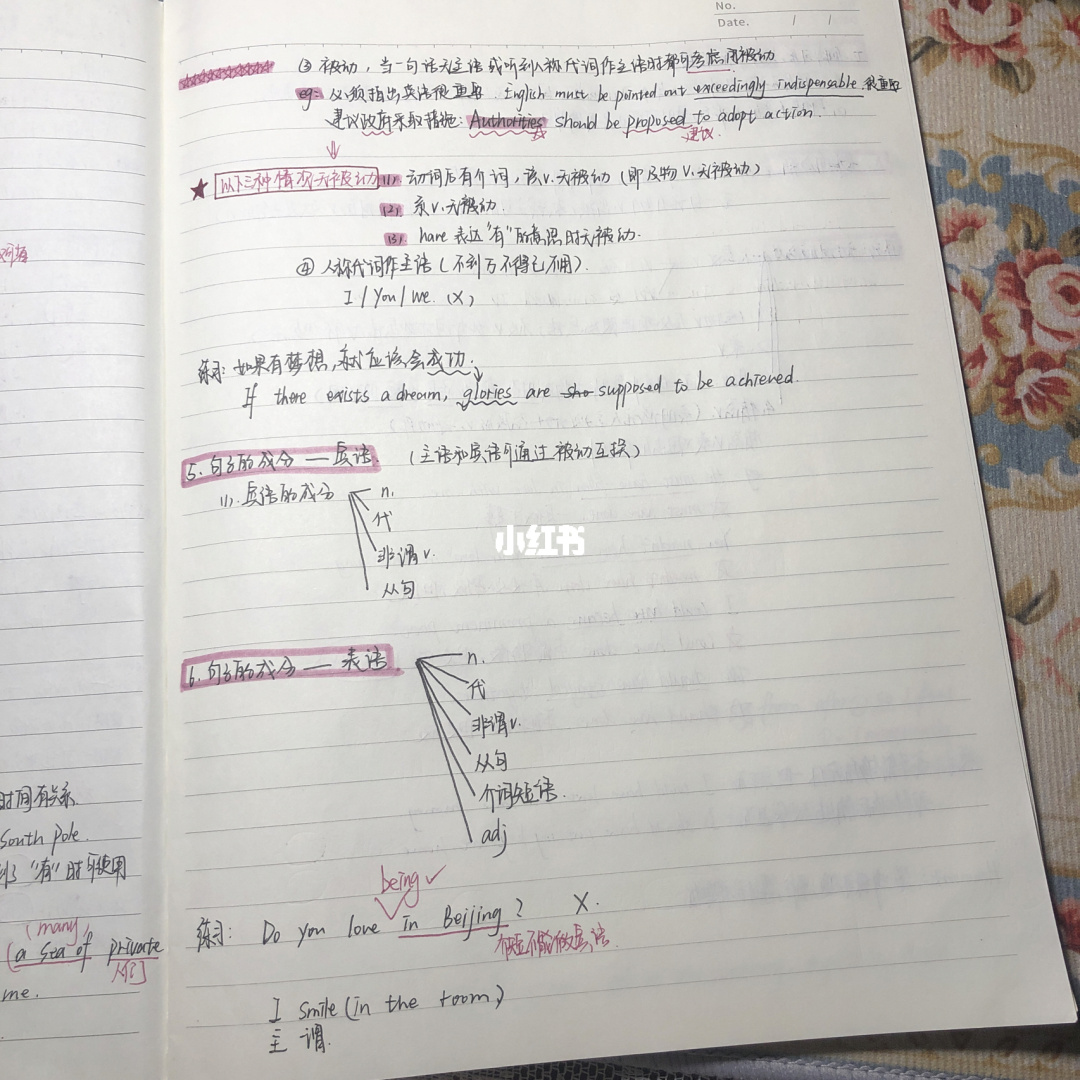 No.
Date. / /
③ 被动，当一句话无主语或听到人称代词作主语时都可考虑用被动
eg: 必须指出英语很重要 English must be pointed out exceedingly indispensable 很重要
建议政府采取措施: Authorities should be proposed to adopt action.
建议.
★ 以下三种情况无被动 (1). 动词后有介词，该v.无被动 (即 及物 v.无被动)
(2). 系v.无被动.
(3). have 表达"有"的意思时无被动.
④ 人称代词作主语 (不到万不得已不用).
I / You / We. (X)
练习: 如果有梦想,就应该会成功.
If there exists a dream, glories are supposed to be achieved.
5. 句子的成分 — 宾语. (主语和宾语可通过被动互换)
(1). 宾语的成分
n.
代
非谓v.
从句
小红书
6. 句子的成分 — 表语
n.
代
非谓v.
从句
介词短语.
adj
being ✓
练习: Do you love in Beijing? X.
介短不能做宾语.
I smile (in the room)
主 谓.
时间有关系
South Pole.
"有"时可使用
(many)
(a sea of private
人们]
me.